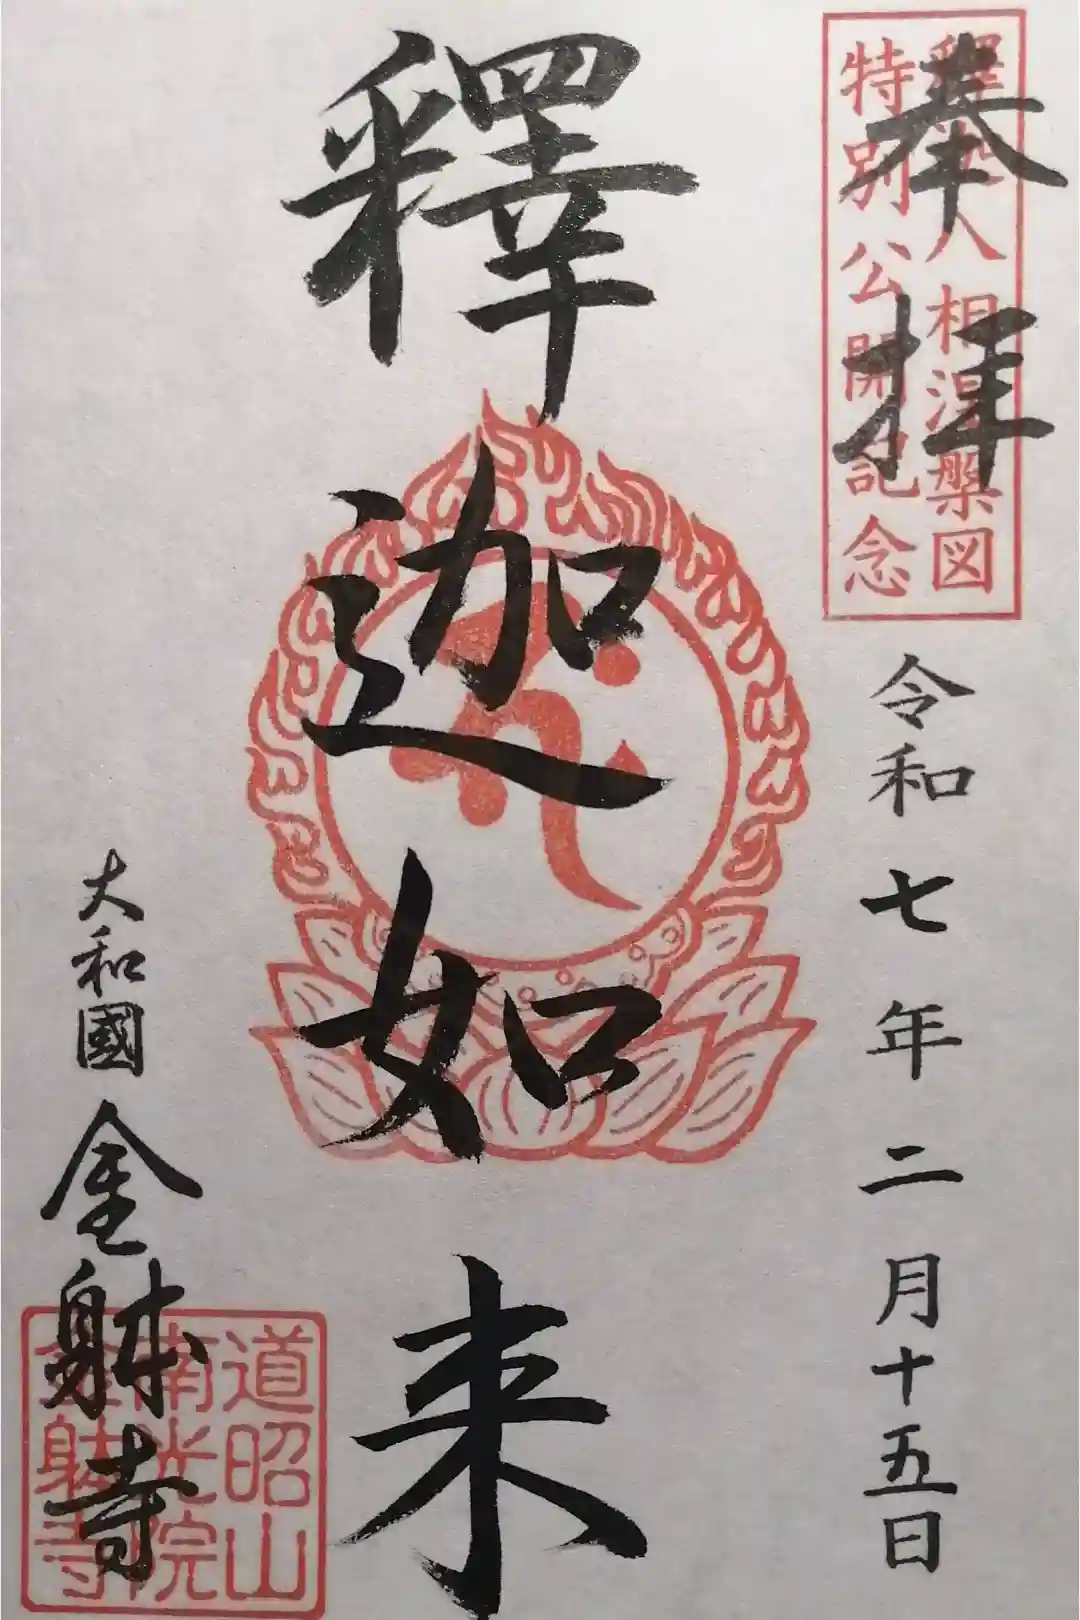 奉拝
釋迦八相涅槃図
特別公開記念
令和七年二月十五日
釋迦如来
大和國
金躰寺
道昭山
南光院
金躰寺